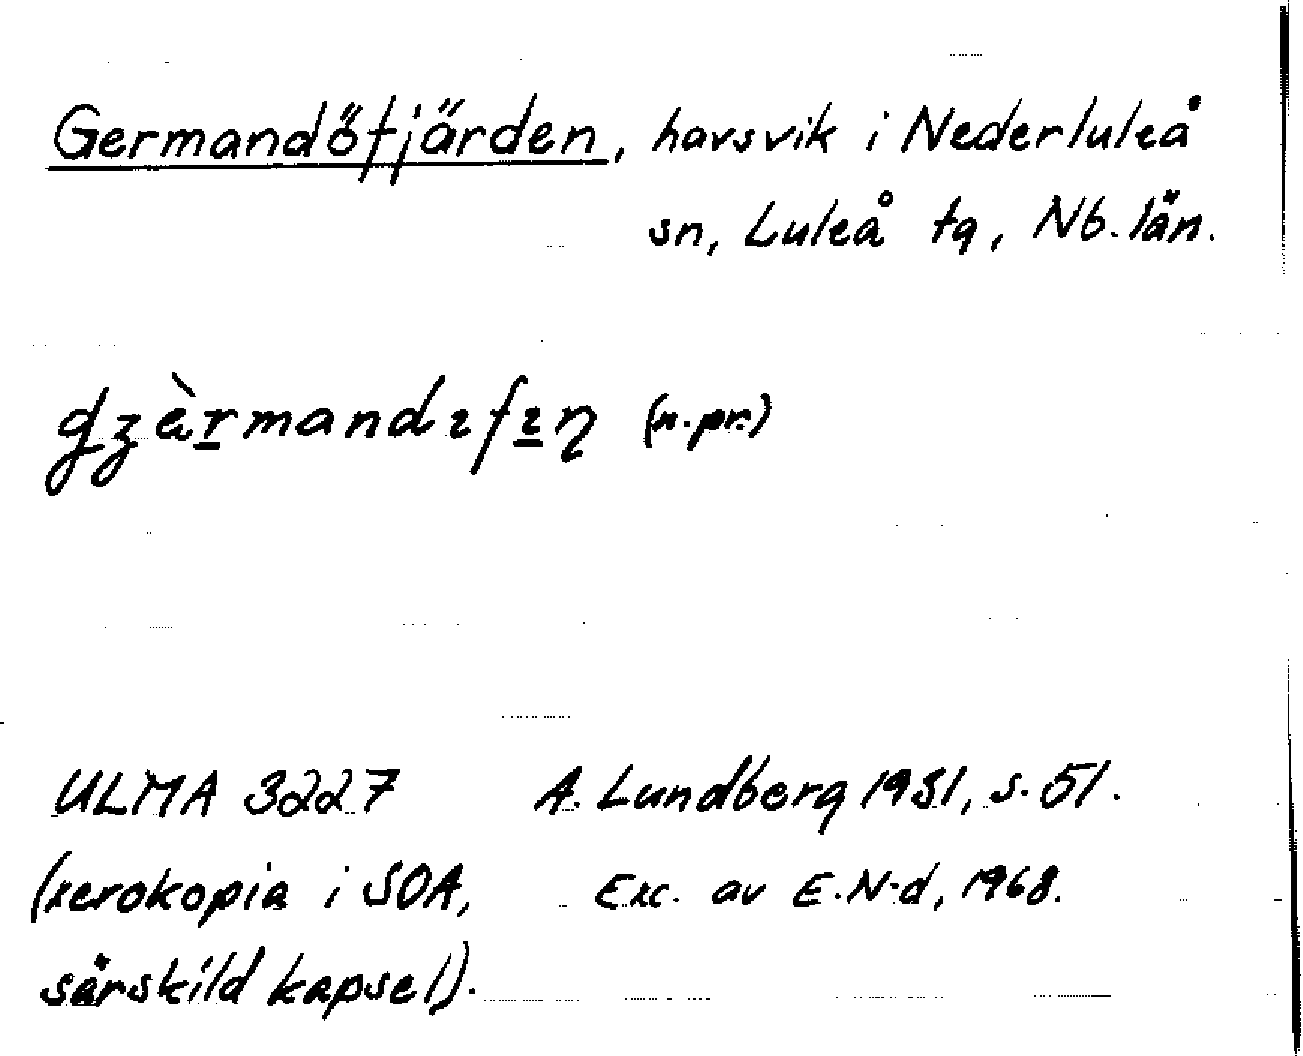 Germandöfjärden, havsvik i Nederluleå
sn, Luleå tg, Nb. län.
(n.pr.)
ULMA 3227 A. Lundberg 1931, s. 51.
(xerokopia i SOA, Exc. av E.N-d, 1968.
särskild kapsel).